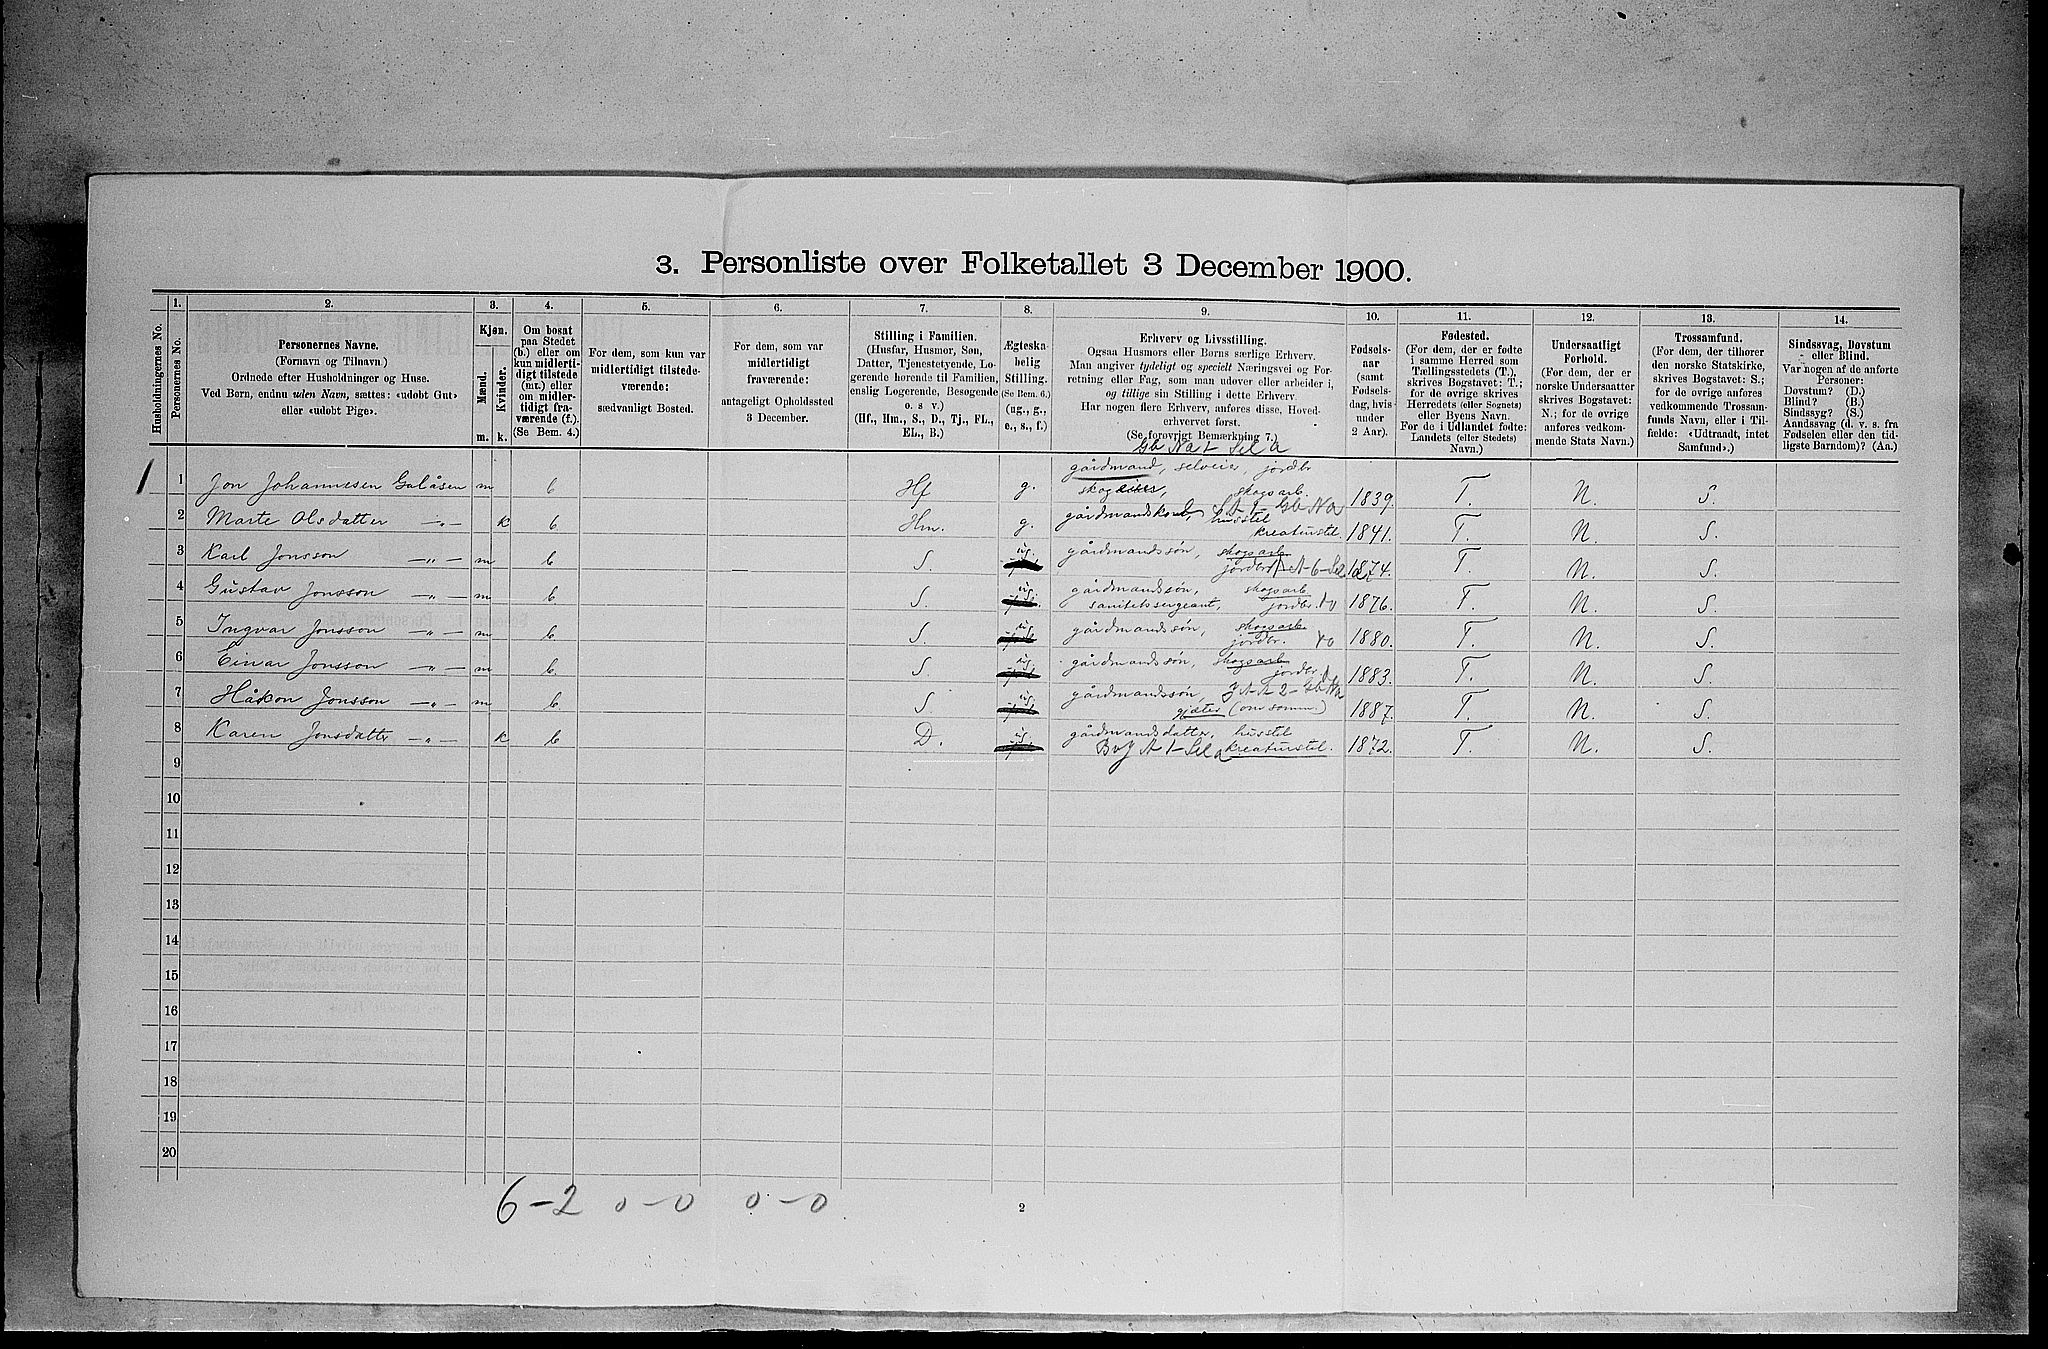 3. Personliste over Folketallet 3 December 1900.
Husholdningernes No.
1.
Personernes No.
2.
Personernes Navne.
(Fornavn og Tilnavn.)
Ordnede efter Husholdninger og Huse.
Ved Børn, endnu uden Navn, sættes: «udøbt Gut»
eller «udøbt Pige».
3.
Kjøn.
Mænd.
Kvinder.
m.
k.
4.
Om bosat
paa Stedet
(b.) eller om
kun midlerti-
digt tilstede
(mt.) eller
om midler-
tidigt fra-
værende (f.).
(Se Bem. 4.)
5.
For dem, som kun var
midlertidigt tilstede-
værende:
sædvanligt Bosted.
6.
For dem, som var
midlertidigt
fraværende:
antageligt Opholdssted
3 December.
7.
Stilling i Familien.
(Husfar, Husmor, Søn,
Datter, Tjenestetyende, Lo-
gerende hørende til Familien,
enslig Logerende, Besøgende
o. s v.)
(Hf., Hm., S., D., Tj., FL.,
EL., B.)
8.
Ægteska-
belig
Stilling.
(Se Bem. 6.)
(ug., g.,
e., s., f.)
9.
Erhverv og Livsstilling.
Ogsaa Husmors eller Børns særlige Erhverv.
Man angiver tydeligt og specielt Næringsvei og For-
retning eller Fag, som man udøver eller arbeider i,
og tillige sin Stilling i dette Erhverv.
Har nogen flere Erhverv, anføres disse, Hoved-
erhvervet først.
(Se forøvrigt Bemærkning 7.)
10.
Fødsels-
aar
(samt
Fødsels-
dag, hvis
under
2 Aar).
11.
Fødested.
(For dem, der er fødte
i samme Herred som
Tællingsstedets (T.),
skrives Bogstavet: T.;
for de øvrige skrives
Herredets (eller Sognets)
eller Byens Navn.
For de i Udlandet fødte:
Landets (eller Stedets)
Navn.)
12.
Undersaatligt
Forhold.
(For dem, der er
norske Undersaatter
skrives Bogstavet:
N.; for de øvrige
anføres vedkom-
mende Stats Navn.)
13.
Trossamfund.
(For dem, der tilhører
den norske Statskirke,
skrives Bogstavet: S.;
for de øvrige anføres
vedkommende Trossam-
funds Navn, eller i Til-
fælde: «Udtraadt, intet
Samfund».)
14.
Sindssvag, Døvstum
eller Blind.
Var nogen af de anførte
Personer:
Døvstum? (D.)
Blind? (B.)
Sindssyg? (S.)
Aandssvag (d. v. s. fra
Fødselen eller den tid-
ligste Barndom)? (Aa.)
1 1 Jon Johannesen Galåsen m b Hf g. gårdmand, selveier, jordbr
skogeier, skogsarb. 1839. T. N. S.
2 Marte Olsdatter —„— k b Hm. g. gårdmandskone, husstel
kreaturstel. 1841. T. N. S.
3 Karl Jonsson —„— m b S. ug. gårdmandssøn, skogsarb
jordbr. 1874. T. N. S.
4 Gustav Jonsson —„— m b S. ug. gårdmandssøn, skogsarb
sanitetssergeant, jordbr. 1876. T. N. S.
5 Ingvar Jonsson —„— m b S. ug. gårdmandssøn, skogsarb.
jordbr. 1880. T. N. S.
6 Einar Jonsson —„— m b S. ug. gårdmandssøn, skogsarb
jordbr. 1883. T. N. S.
7 Håkon Jonsson —„— m b S. ug. gårdmandssøn,
gjæter (om somm.) 1887. T. N. S.
8 Karen Jonsdatter —„— k b D. ug. gårdmandsdatter, husstel
kreaturstel. 1872. T. N. S.
9
10
11
12
13
14
15
16
17
18
19
20
6–2 0–0 0–0
2